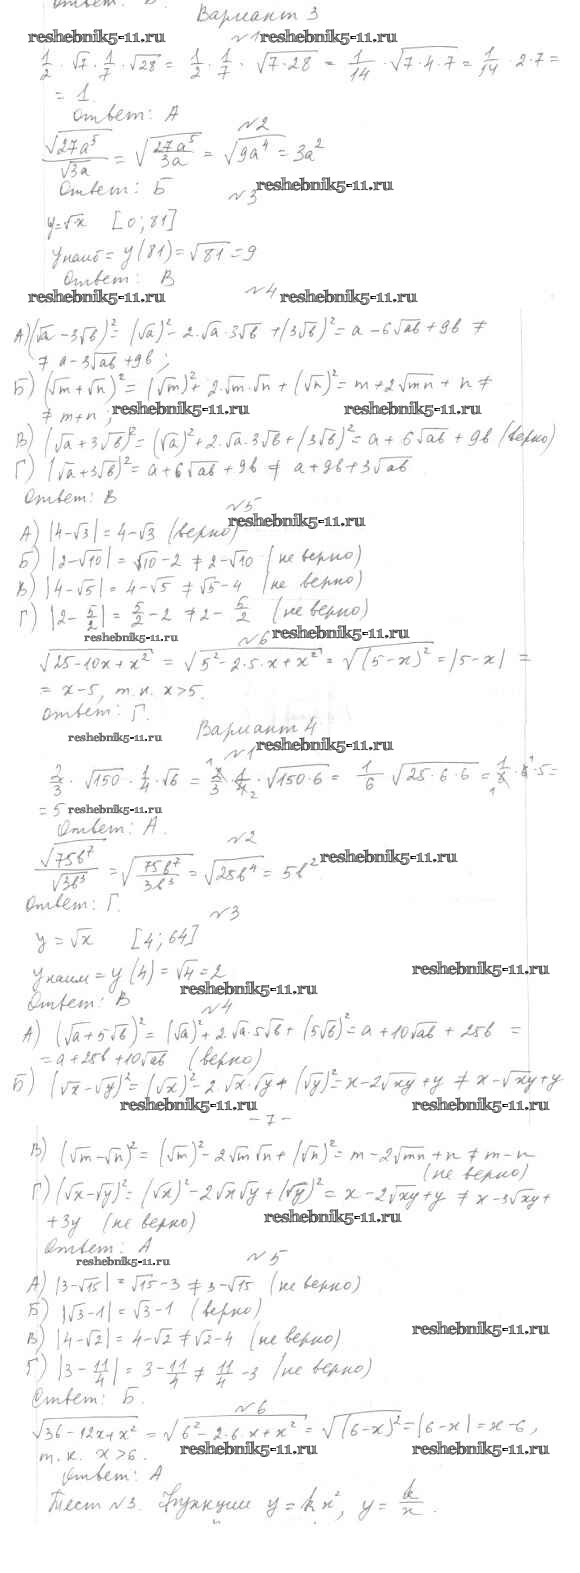 Ответ: В.
Вариант 3
reshebnik5-11.ru №1 reshebnik5-11.ru
1/2 · √7 · 1/7 · √28 = 1/2 · 1/7 · √7·28 = 1/14 · √7·4·7 = 1/14 · 2·7 =
= 1.
Ответ: А
№2
√27a⁵/√3a = √27a⁵/3a = √9a⁴ = 3a²
Ответ: Б reshebnik5-11.ru
№3
y=√x [0; 81]
yнаиб = y(81) = √81 = 9
Ответ: В
reshebnik5-11.ru №4 reshebnik5-11.ru
А) (√a - 3√b)² = (√a)² - 2·√a·3√b + (3√b)² = a - 6√ab + 9b ≠
≠ a - 3√ab + 9b;
Б) (√m + √n)² = (√m)² + 2·√m·√n + (√n)² = m + 2√mn + n ≠
≠ m+n; reshebnik5-11.ru reshebnik5-11.ru
В) (√a + 3√b)² = (√a)² + 2·√a·3√b + (3√b)² = a + 6√ab + 9b (верно)
Г) (√a + 3√b)² = a + 6√ab + 9b ≠ a + 9b + 3√ab
Ответ: В
№5
reshebnik5-11.ru
А) |4-√3| = 4-√3 (верно)
Б) |2-√10| = √10-2 ≠ 2-√10 (не верно)
В) |4-√5| = 4-√5 ≠ √5-4 (не верно)
Г) |2 - 5/2| = 5/2 - 2 ≠ 2 - 5/2 (не верно)
reshebnik5-11.ru №6 reshebnik5-11.ru
√25-10x+x² = √5²-2·5·x+x² = √(5-x)² = |5-x| =
= x-5, т.к. x>5.
Ответ: Г.
Вариант 4
reshebnik5-11.ru
№1 reshebnik5-11.ru
2/3 · √150 · 1/4 · √6 = 2/3 · 1/4 · √150·6 = 1/6 √25·6·6 = 1/6 · 6·5 =
= 5 reshebnik5-11.ru
Ответ: А.
№2
√75b⁷/√3b³ = √75b⁷/3b³ = √25b⁴ = 5b² reshebnik5-11.ru
Ответ: Г.
№3
y = √x [4; 64]
yнаим = y(4) = √4 = 2 reshebnik5-11.ru
reshebnik5-11.ru
Ответ: В
№4
А) (√a + 5√b)² = (√a)² + 2·√a·5√b + (5√b)² = a + 10√ab + 25b =
= a + 25b + 10√ab (верно)
Б) (√x - √y)² = (√x)² - 2·√x·√y + (√y)² = x - 2√xy + y ≠ x - √xy + y
reshebnik5-11.ru reshebnik5-11.ru
- 7 -
В) (√m - √n)² = (√m)² - 2√m√n + (√n)² = m - 2√mn + n ≠ m - n
(не верно)
Г) (√x - √y)² = (√x)² - 2√x√y + (√y)² = x - 2√xy + y ≠ x - 3√xy +
+ 3y (не верно) reshebnik5-11.ru
Ответ: А
reshebnik5-11.ru №5
А) |3-√15| = √15-3 ≠ 3-√15 (не верно)
Б) |√3-1| = √3-1 (верно)
reshebnik5-11.ru
В) |4-√2| = 4-√2 ≠ √2-4 (не верно)
Г) |3 - 11/4| = 3 - 11/4 ≠ 11/4 - 3 (не верно)
Ответ: Б.
№6
√36-12x+x² = √6²-2·6·x+x² = √(6-x)² = |6-x| = x-6,
т.к. x>6. reshebnik5-11.ru reshebnik5-11.ru
Ответ: А
Тест №3. Функции y = kx², y = k/x.